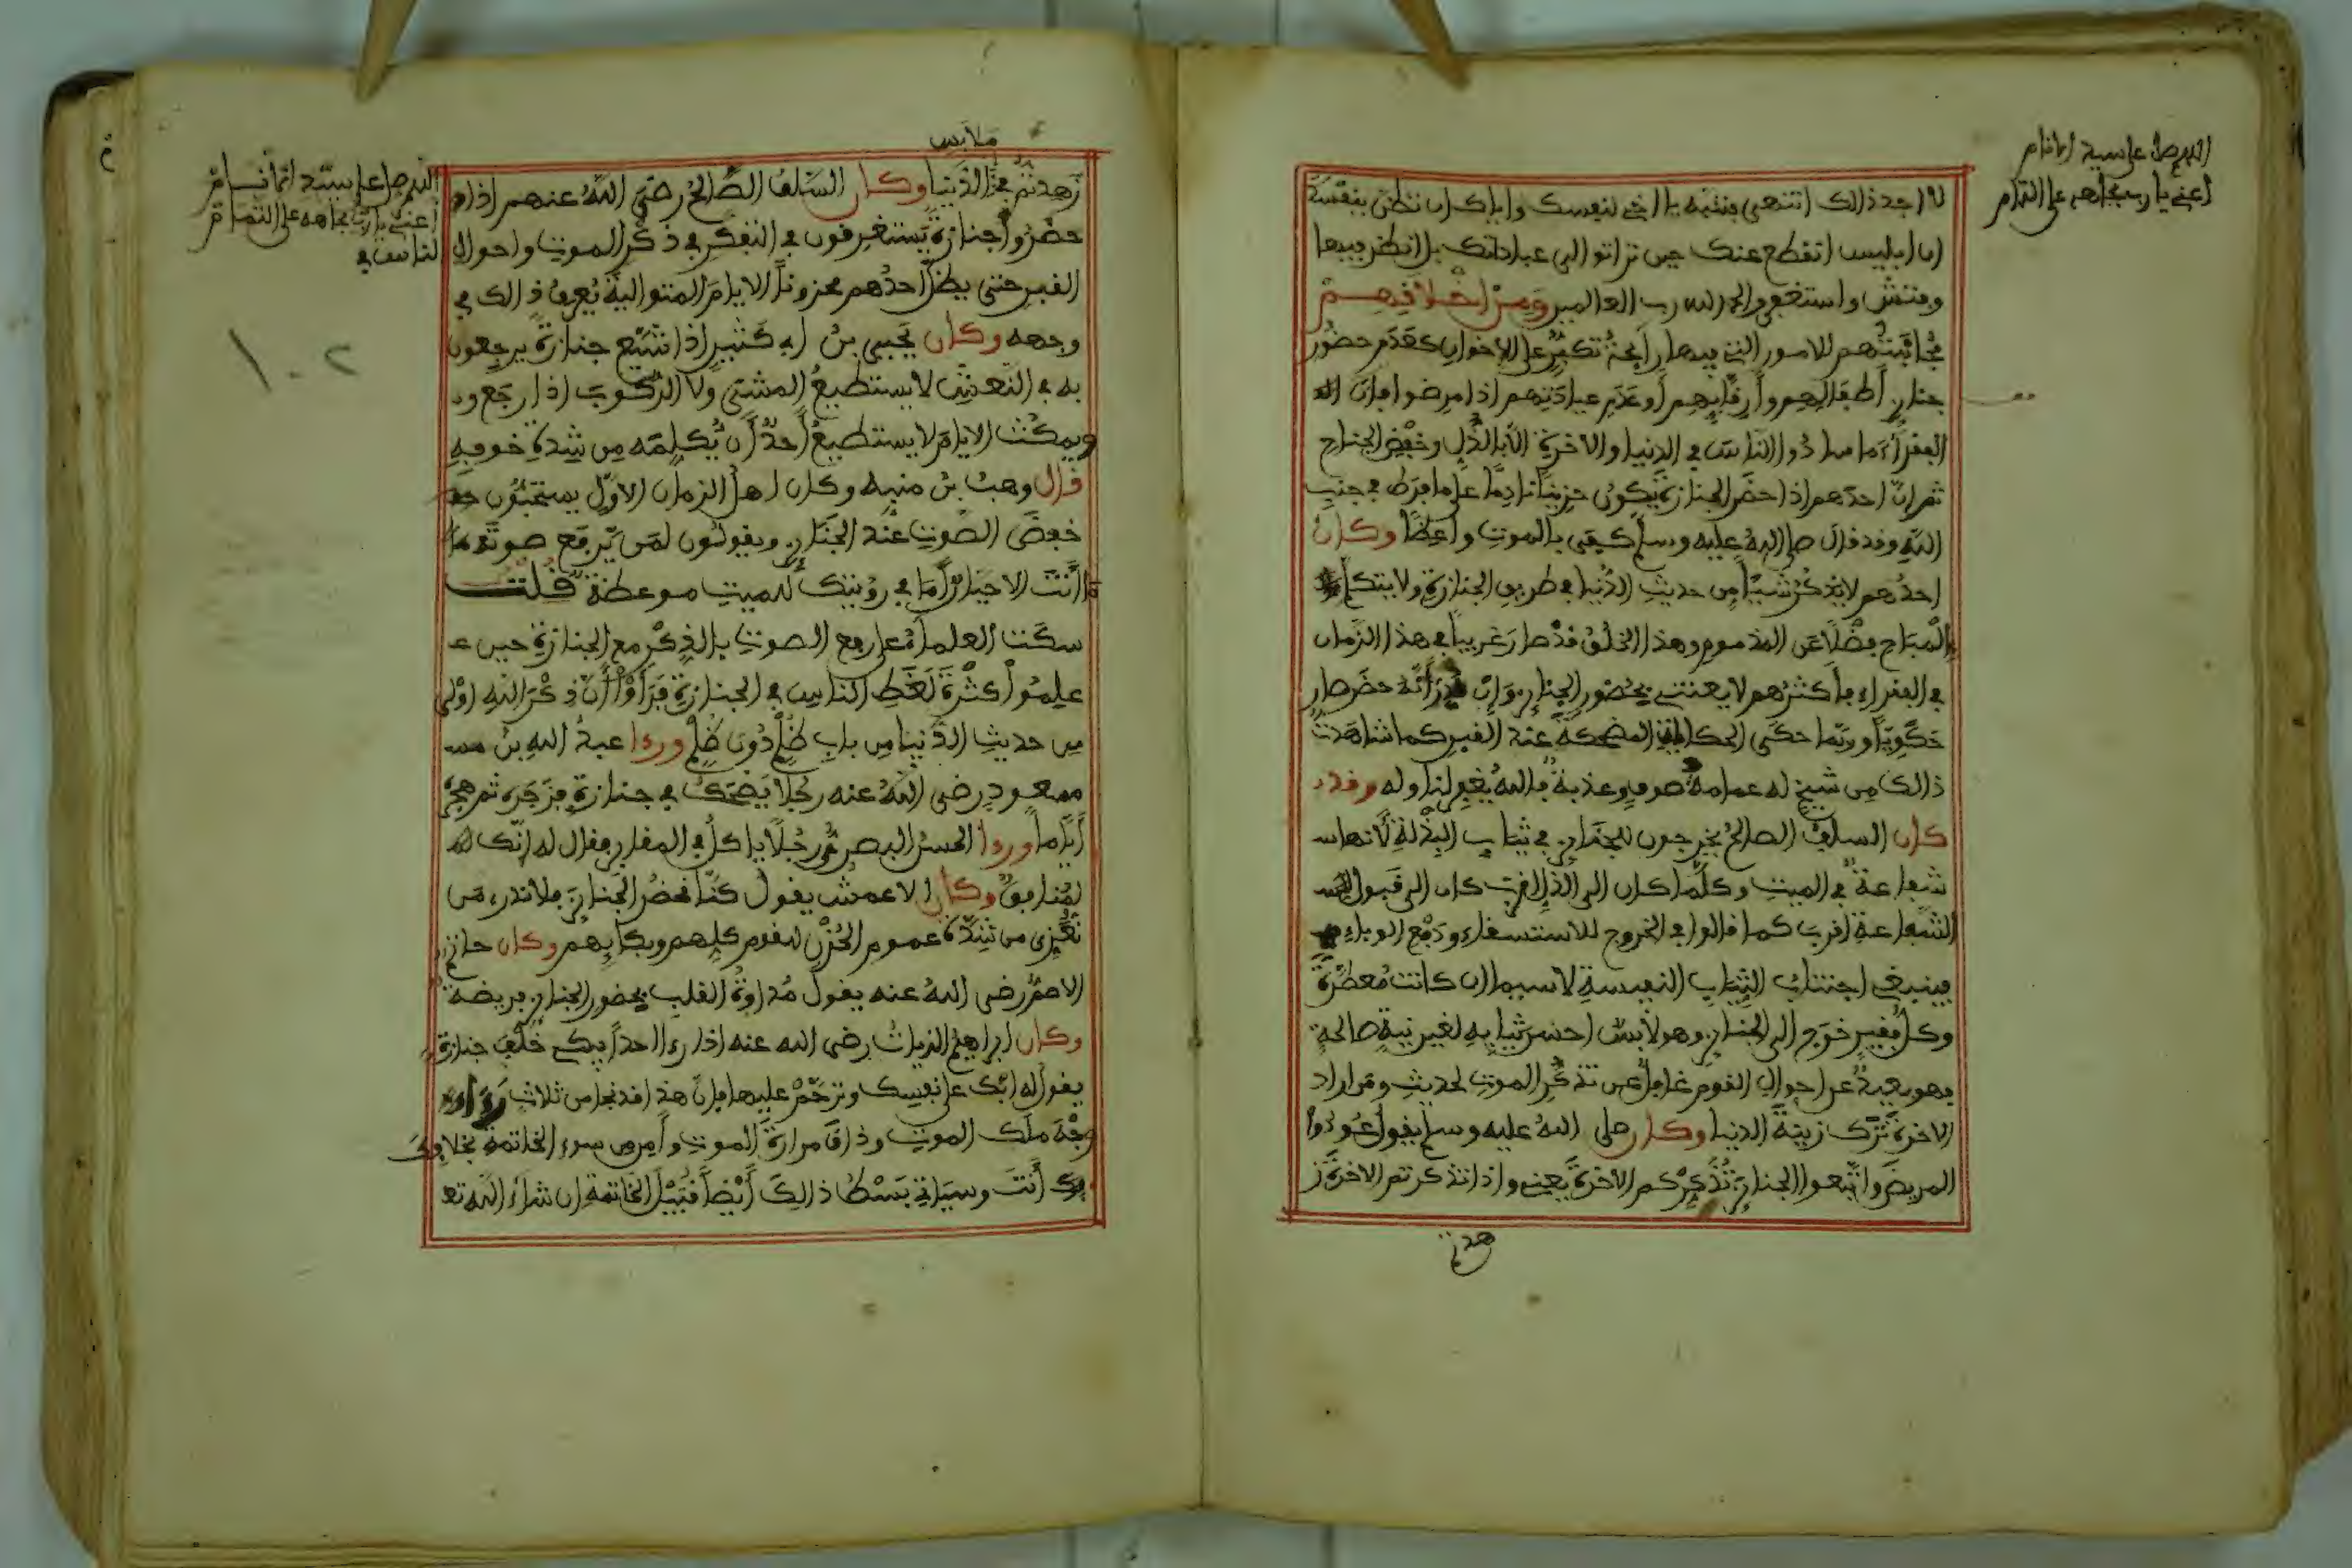 اللهم صل على سيد الانام
اعني يا رب بجاهه على التمام
لا اجد ذلك انتهى فتنبه يا اخي لنفسك واياك ان تظن بنفسك
ان ابليس انقطع عنك حين تراتوا الى عباداتك بل انظر فيها
وفتش واستغفر والحمد لله رب العالمين ومن اخلاقهم
مجانبتهم للامور التي فيها رائحة تكبر على الاخوان كعدم حضور
جنائز اطفالهم وارقائهم او عدم عيادتهم اذا مرضوا فان
الفقراء ما سادوا الناس في الدنيا والاخرة الا بالذل وخفض الجناح
ثم ان احدهم اذا حضر الجنازة يكون حزينا نادما على ما فرط في جنب
الله وقد قال صلى الله عليه وسلم كفى بالموت واعظا وكان
احدهم لا يذكر شيئا من حديث الدنيا في طريق الجنازة ولا يتكلم
بالمباح فضلا عن المذموم وهذا الخلق قد صار غريبا في هذا الزمان
في الفقراء فاكثرهم لا يعتني بحضور الجنائز وان قدر انه حضر صار
حكويا وربما حكى الحكايات المضحكة عند القبر كما شاهدت
ذالك من شيخ له عمامة صوف وعذبة فالله يغفر لنا وله وقد
كان السلف الصالح يخرجون للجنائز في ثياب البذلة لانها
شفاعة في الميت وكلما كان الى الذل اقرب كان الى قبول
الشفاعة اقرب كما قالوا في الخروج للاستسقاء ودفع الوباء
فينبغي اجتناب الثياب النفيسة لا سيما ان كانت معطرة
وكل فقير خرج الى الجنائز وهو لابس احسن ثيابه لغير نية صالحة
فهو بعيد عن احوال القوم غافل عن تذكر الموت لحديث ومن اراد
الاخرة ترك زينة الدنيا وكان صلى الله عليه وسلم يقول عودوا
المريض واتبعوا الجنائز تذكركم الاخرة يعني واذا تذكرتم الاخرة ز
هدتم
ملابس
اللهم صل على سيد الانام
اعني يا رب بجاهه على التمام
زهدتم في الدنيا وكان السلف الصالح رضي الله عنهم اذا
حضروا جنازة يستغرقون في التفكر في ذكر الموت واحوال
القبر حتى يظل احدهم محزونا الايام المتوالية يعرف ذالك في
وجهه وكان يحيى بن ابي كثير اذا شيع جنازة يرجعون
به في النعش لا يستطيع المشي ولا الركوب اذا رجعو
ويمكث الايام لا يستطيع احد ان يكلمه من شدة خوفه
قال وهب بن منبه وكان اهل الزمان الاول يستحبون
خفض الصوت عند الجنائز ويقولون لمن يرفع صوته
ما انت الا جبار اما في رؤيتك للميت موعظة قلت
سكت العلماء على رفع الصوت بالذكر مع الجنازة حين
علموا كثرة لغط الناس في الجنازة فرأوا ان ذكر الله اولى
من حديث الدنيا من باب ظلم دون ظلم ورءا عبد الله بن
مسعود رضي الله عنه رجلا يضحك في جنازة فزجره ثم هجره
اياما ورءا الحسن البصري رجلا ياكل في المقابر فقال له انك
لمنافق وكان الاعمش يقول كنا نحضر الجنائز فلا ندري من
نعزي من شدة عموم الحزن للقوم كلهم وبكائهم وكان حاتم
الاصم رضي الله عنه يقول مداوة القلب بحضور الجنائز فريضة
وكان ابراهيم الزيات رضي الله عنه اذا رءا احدا يبكي خلف جنازة
يقول له ابك على نفسك وترحم عليها فان هذا قد نجا من ثلاث رءا
وجه ملك الموت وذاق مرارة الموت وامن من سوء الخاتمة بخلافك
انت وسياتي بسط ذالك ايضا قبيل الخاتمة ان شاء الله تع
١٠٢